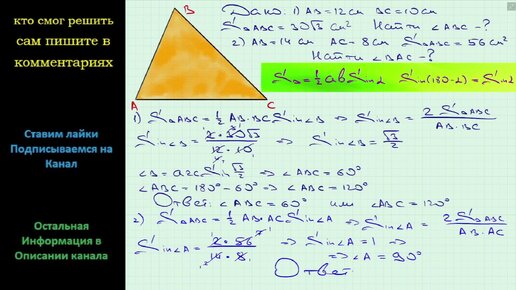 кто смог решить
сам пишите в
комментариях
Ставим лайки
Подписываемся на
Канал
Остальная
Информация в
Описании канала
B
A
C
Дано: 1) AB=12см BC=10см
S△ABC=30√3 см² Найти ∠ABC-?
2) AB=14см AC=8см S△ABC=56см²
Найти ∠BAC-?
S△=½ab Sin∠ Sin(180-∠)=Sin∠
1) S△ABC=½AB·BC Sin∠B ⇒ Sin∠B = 2S△ABC / AB·BC
Sin∠B = 2·30√3 / 12·10 ⇒ Sin∠B = √3/2
∠B = arcSin √3/2 ⇒ ∠ABC=60°
∠ABC=180°-60° ⇒ ∠ABC=120°
Ответ: ∠ABC=60° или ∠ABC=120°
2) S△ABC=½AB·AC Sin∠A ⇒ Sin∠A = 2S△ABC / AB·AC
Sin∠A = 2·56 / 14·8 ⇒ Sin∠A=1 ⇒
⇒ ∠A=90°
Ответ